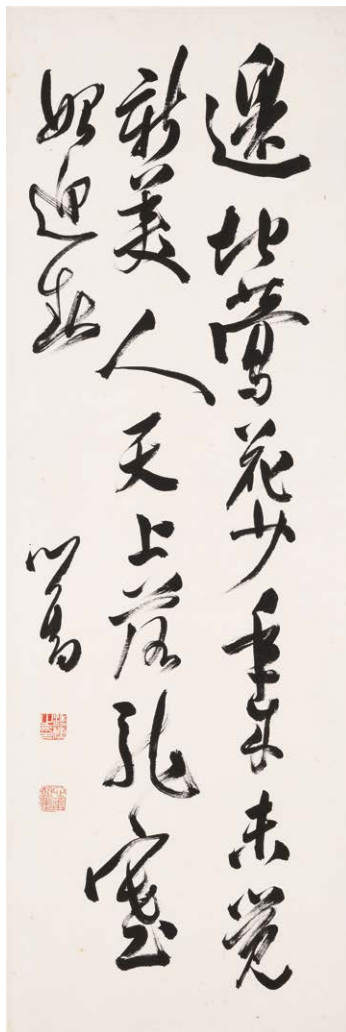 邊地鶯花少年來未覺
新美人天上落龍塞
始迎春
心畬